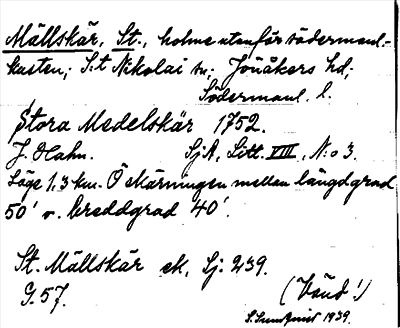 Mällskär, St., holme utanför södermanl.-
kusten; S:t Nikolai sn; Jönåkers hd;
Södermanl. l.
Stora Medelskär 1752.
J. Hahn. SjA, Litt. VIII, N:o 3.
Läge 1,3 km. Ö skärningen mellan längdgrad
50' o. breddgrad 40'.
St. Mällskär ek. Sj. 239.
G. 57. (Vänd!)
S. Sundqvist 1939.